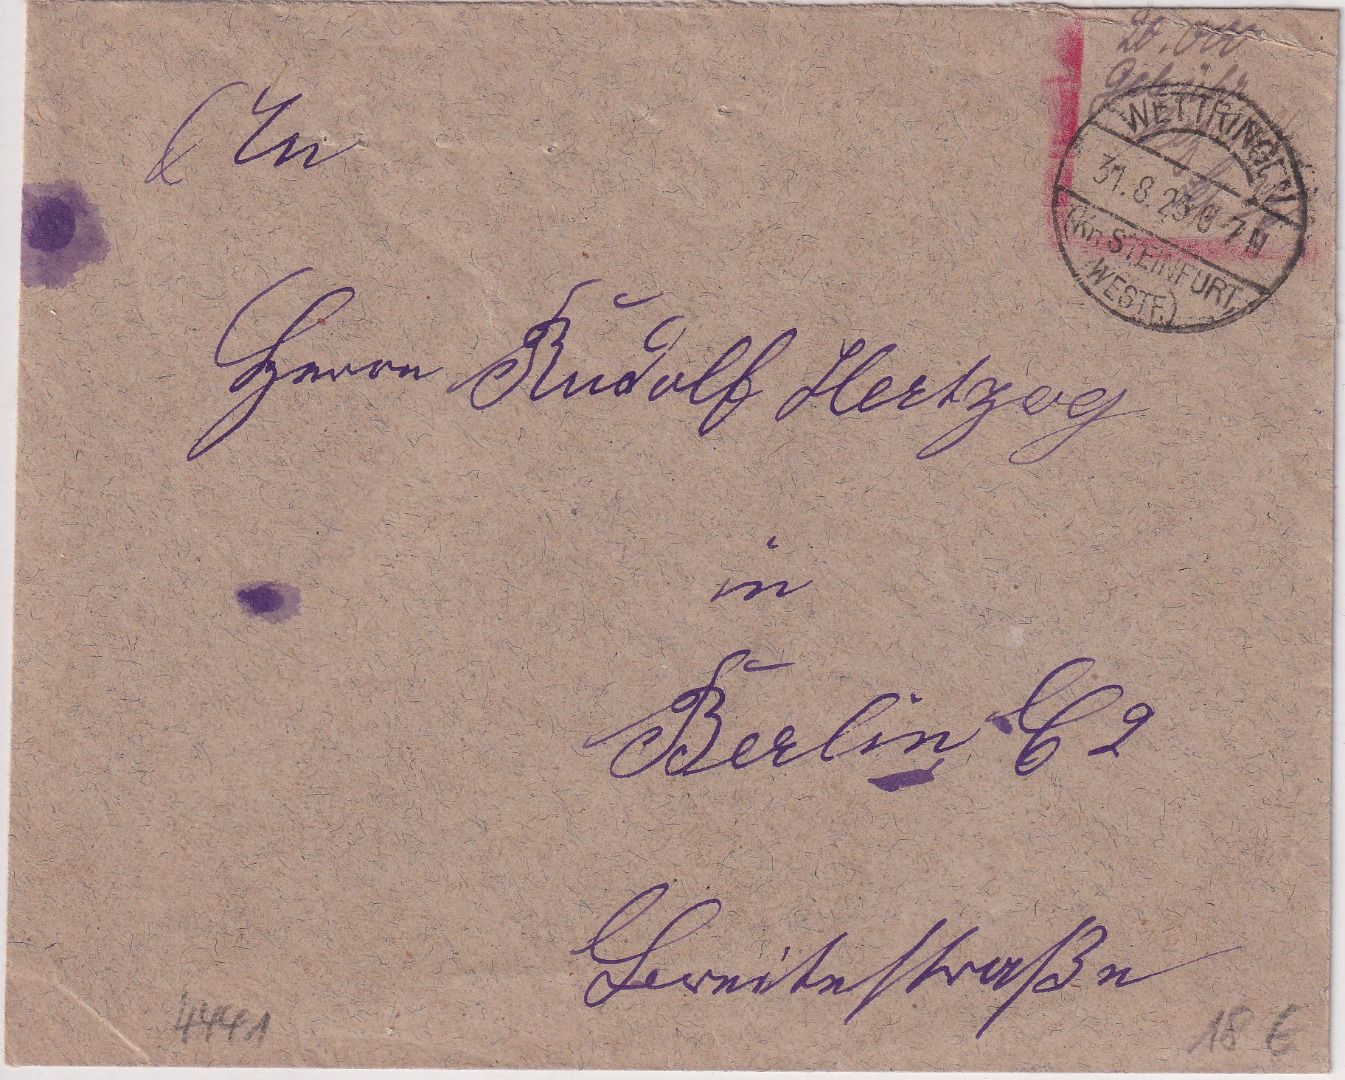 20.000
Gebühr
WETTRINGEN
31.8.23 6-7N
(Kr. STEINFURT
WESTF.)
An
Herrn Rudolf Hertzog
in
Berlin C 2
Breitestraße
4441
18 €